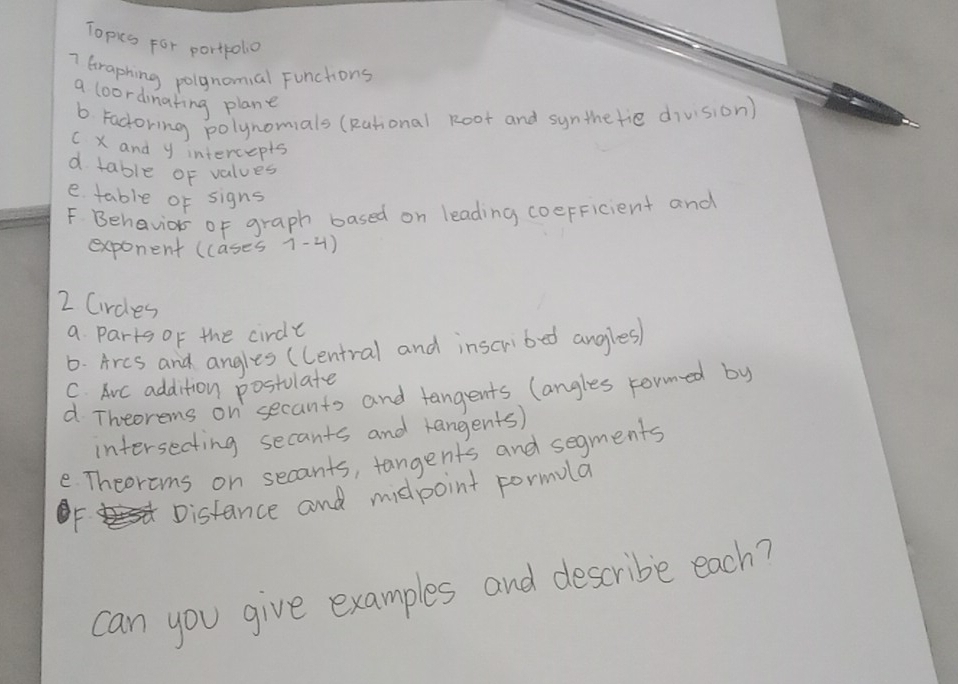 Topics For portfolio
1 Graphing polynomial Functions
a Coordinating plane
b Factoring polynomials (Rational Root and synthetic division)
c x and y intercepts
d. table of values
e. table of signs
F. Behavior of graph based on leading coefficient and
exponent (cases 1-4)
2 Circles
a. Parts of the circle
b. Arcs and angles (Central and inscribed angles)
c. Arc addition postulate
d. Theorems on secants and tangents (angles formed by
intersecting secants and tangents)
e. Theorems on secants, tangents and segments
F. Distance and midpoint formula
can you give examples and describe each?